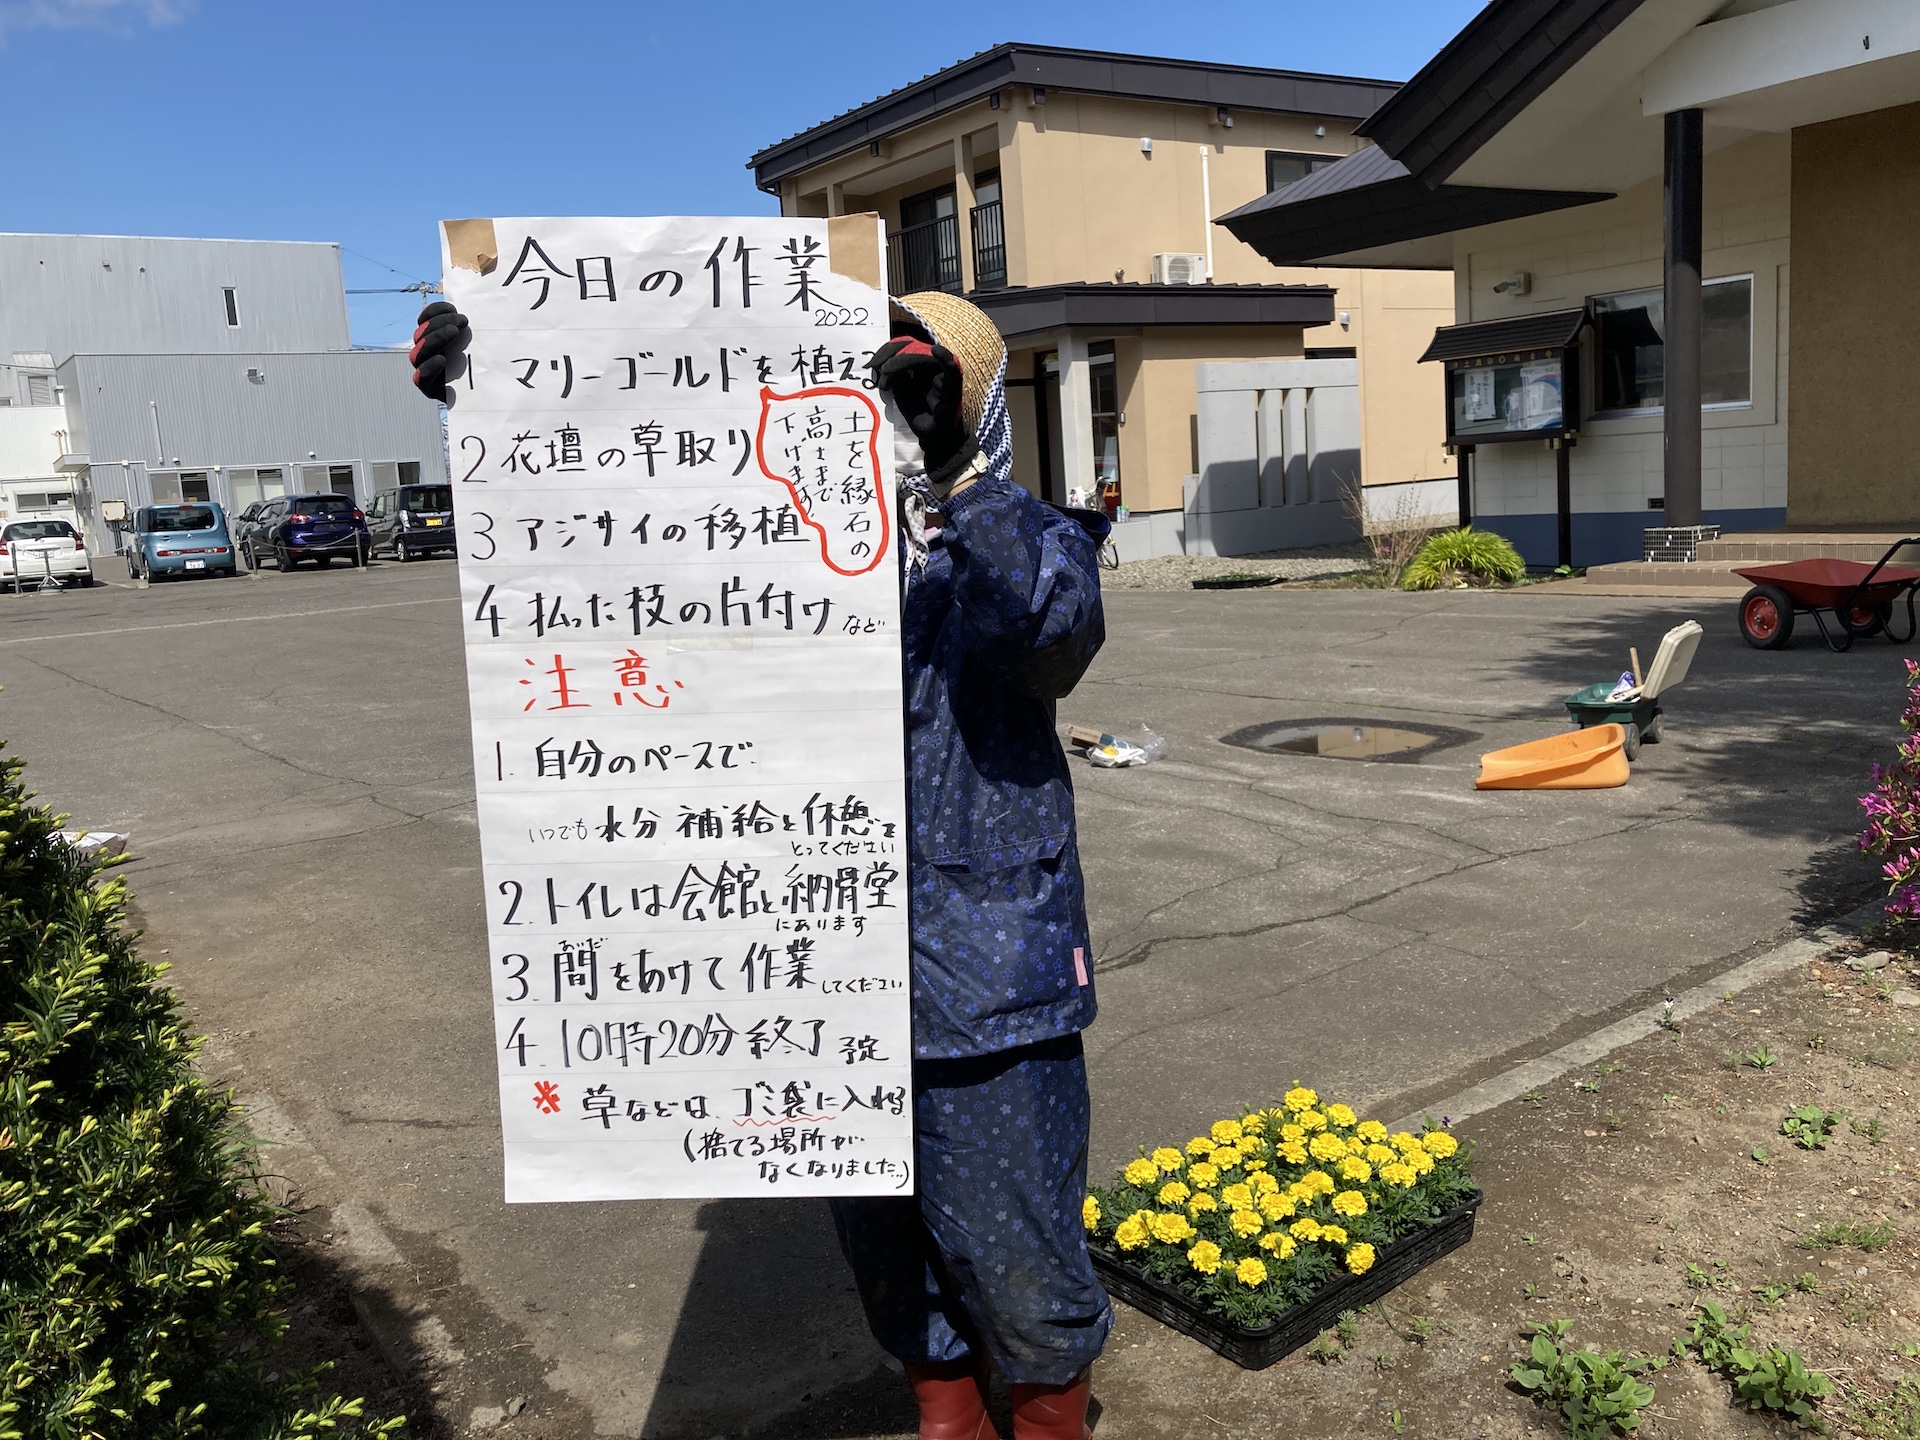 今日の作業
2022.
1 マリーゴールドを植える
2 花壇の草取り
土を縁石の
高さまで
下げます
3 アジサイの移植
4 払った枝の片付け など
注意
1. 自分のペースで
いつでも 水分補給と休憩を
とってください
2. トイレは会館と納骨堂
にあります
あいだ
3. 間をあけて作業してください
4. 10時20分終了 予定
※ 草などは ゴミ袋に入れる
(捨てる場所が
なくなりました…)